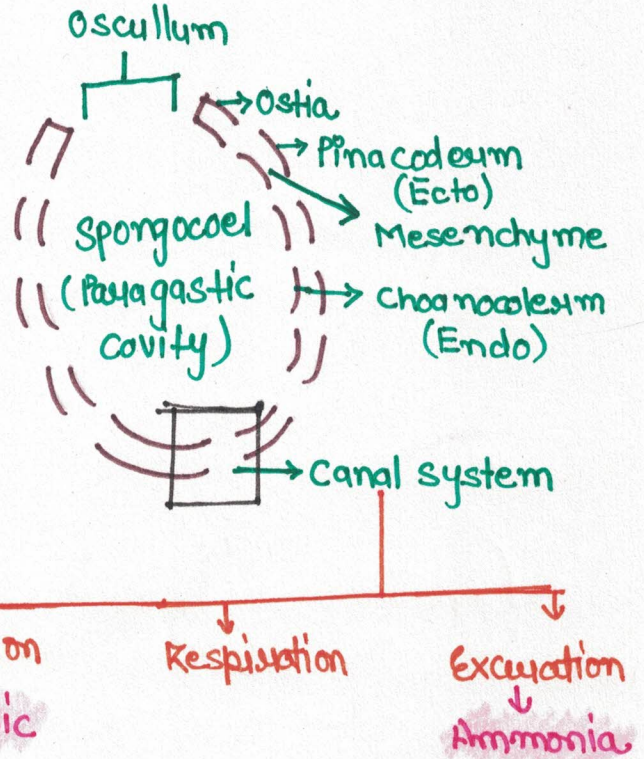 Oscullum
Ostia
Pinacoderm
(Ecto)
Mesenchyme
Spongocoel
(Paragastic
cavity)
Choanocoderm
(Endo)
Canal system
on
Respiration
Excretion
ic
Ammonia